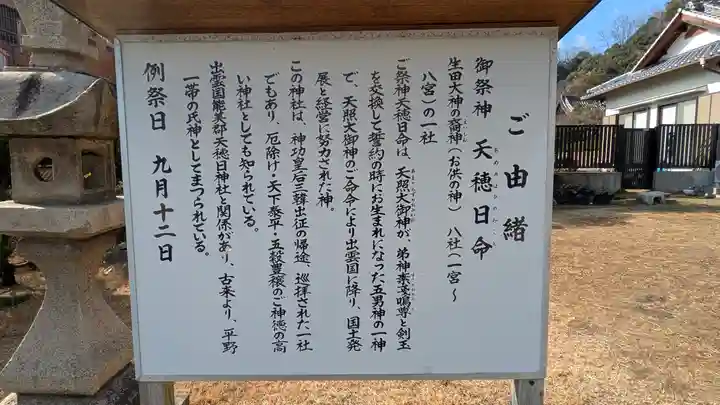 ご由緒
御祭神 天穂日命
あめのほひのみこと
生田大神の裔神(お供の神) 八社(一宮〜
えいしん
八宮)の一社
ご祭神天穂日命は、天照大御神が、弟神素戔嗚尊と剣玉
を交換して誓約の時にお生まれになった五男神の一神
で、天照大御神のご命令により出雲国に降り、国土発
展と経営に努力された神。
この神社は、神功皇后三韓出征の帰途、巡拝された一社
でもあり、厄除け・天下泰平・五穀豊穣のご神徳の高
い神社としても知られている。
出雲国能美郡天穂日神社と関係があり、古来より、平野
一帯の氏神としてまつられている。
例祭日 九月十二日